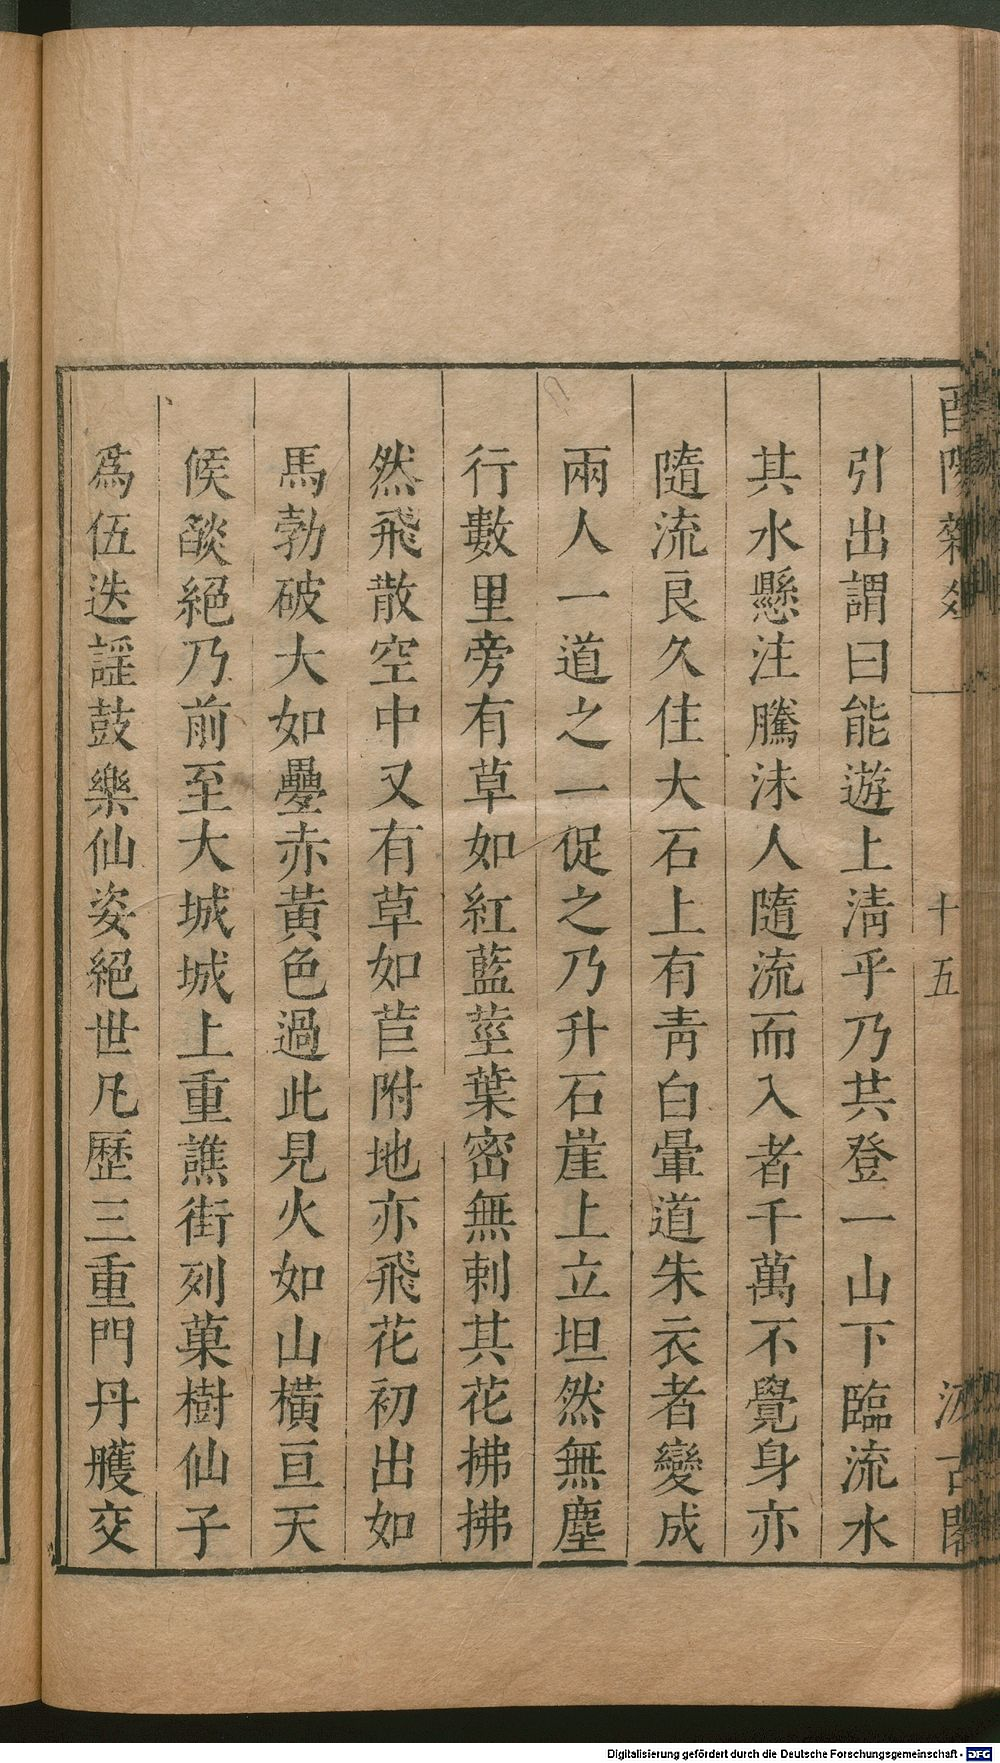 酉陽雜 十五 汲古閣
引出謂曰能遊上淸乎乃共登一山下臨流水
其水懸注騰沫人隨流而入者千萬不覺身亦
隨流良久住大石上有靑白暈道朱衣者變成
兩人一道之一促之乃升石崖上立坦然無塵
行數里旁有草如紅藍莖葉密無刺其花拂拂
然飛散空中又有草如苣附地亦飛花初出如
馬勃破大如疊赤黃色過此見火如山橫亘天
候燄絕乃前至大城城上重譙街列菓樹仙子
爲伍迭謡鼓樂仙姿絕世凡歷三重門丹雘交
Digitalisierung gefördert durch die Deutsche Forschungsgemeinschaft - DFG